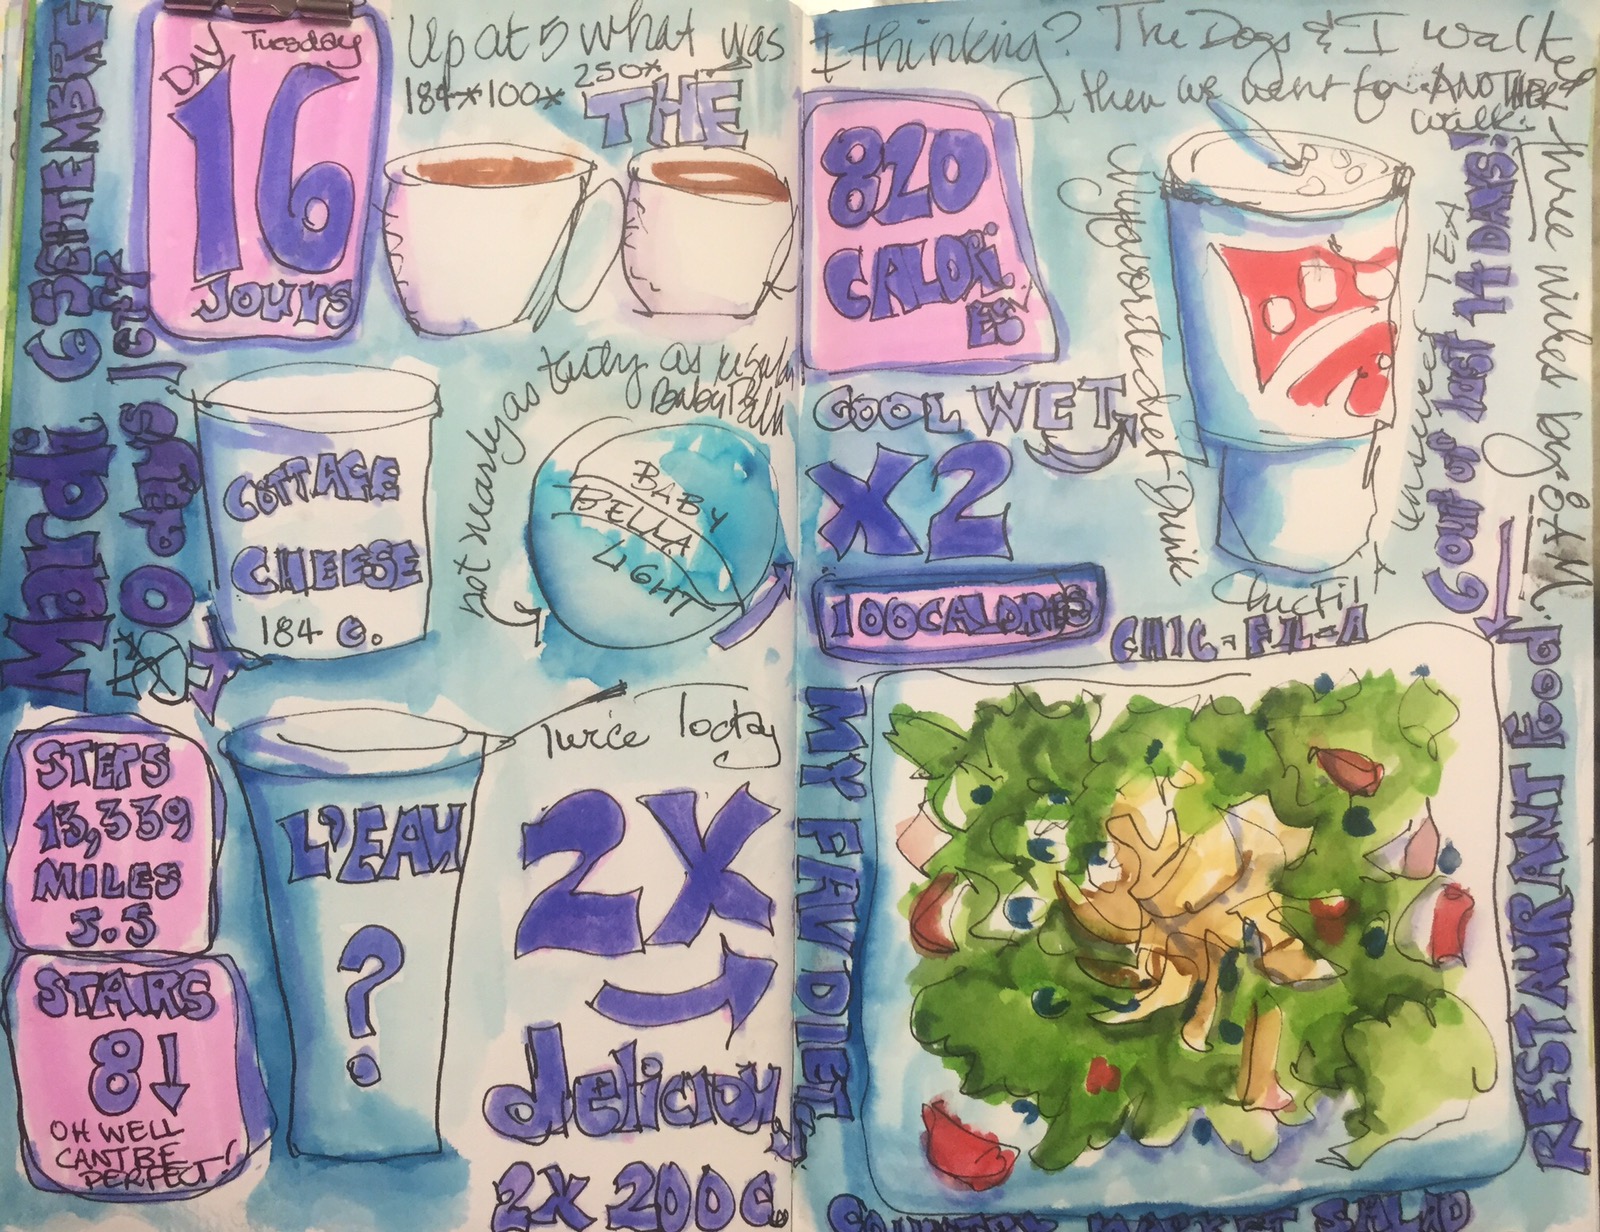 Up at 5 what was I thinking? The Dogs & I walked
then we went for ANOTHER
walk.
three miles by 8 AM.
DAY
Tuesday
16
Jours
184*100*250*
THÉ
SEPTEMBRE
Mardi
COTTAGE
CHEESE
184 C.
not nearly as tasty as regular
Baby Bella
BABY
BELLA
LIGHT
STEPS
13,339
MILES
5.5
STAIRS
8↓
OH WELL
CANT BE
PERFECT!
L'EAU
?
Twice Today
2X
delicious
2X 200C
820
CALORI
ES
COOL WET
X2
100CALORIES
My favorite diet Drink
Unsweet TEA
Chic Fil A
CHIC-FIL-A
6 out of last 14 DAYS!
MY FAV DIET
RESTAURANT Food
COUNTRY MARKET SALAD